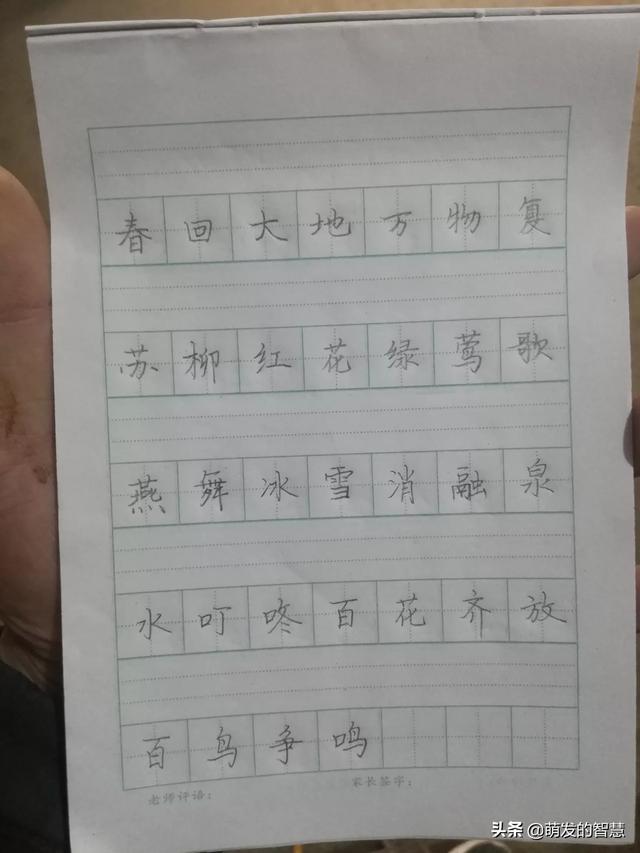 春回大地万物复
苏柳红花绿莺歌
燕舞冰雪消融泉
水叮咚百花齐放
百鸟争鸣
老师评语： 家长签字：
头条 @萌发的智慧